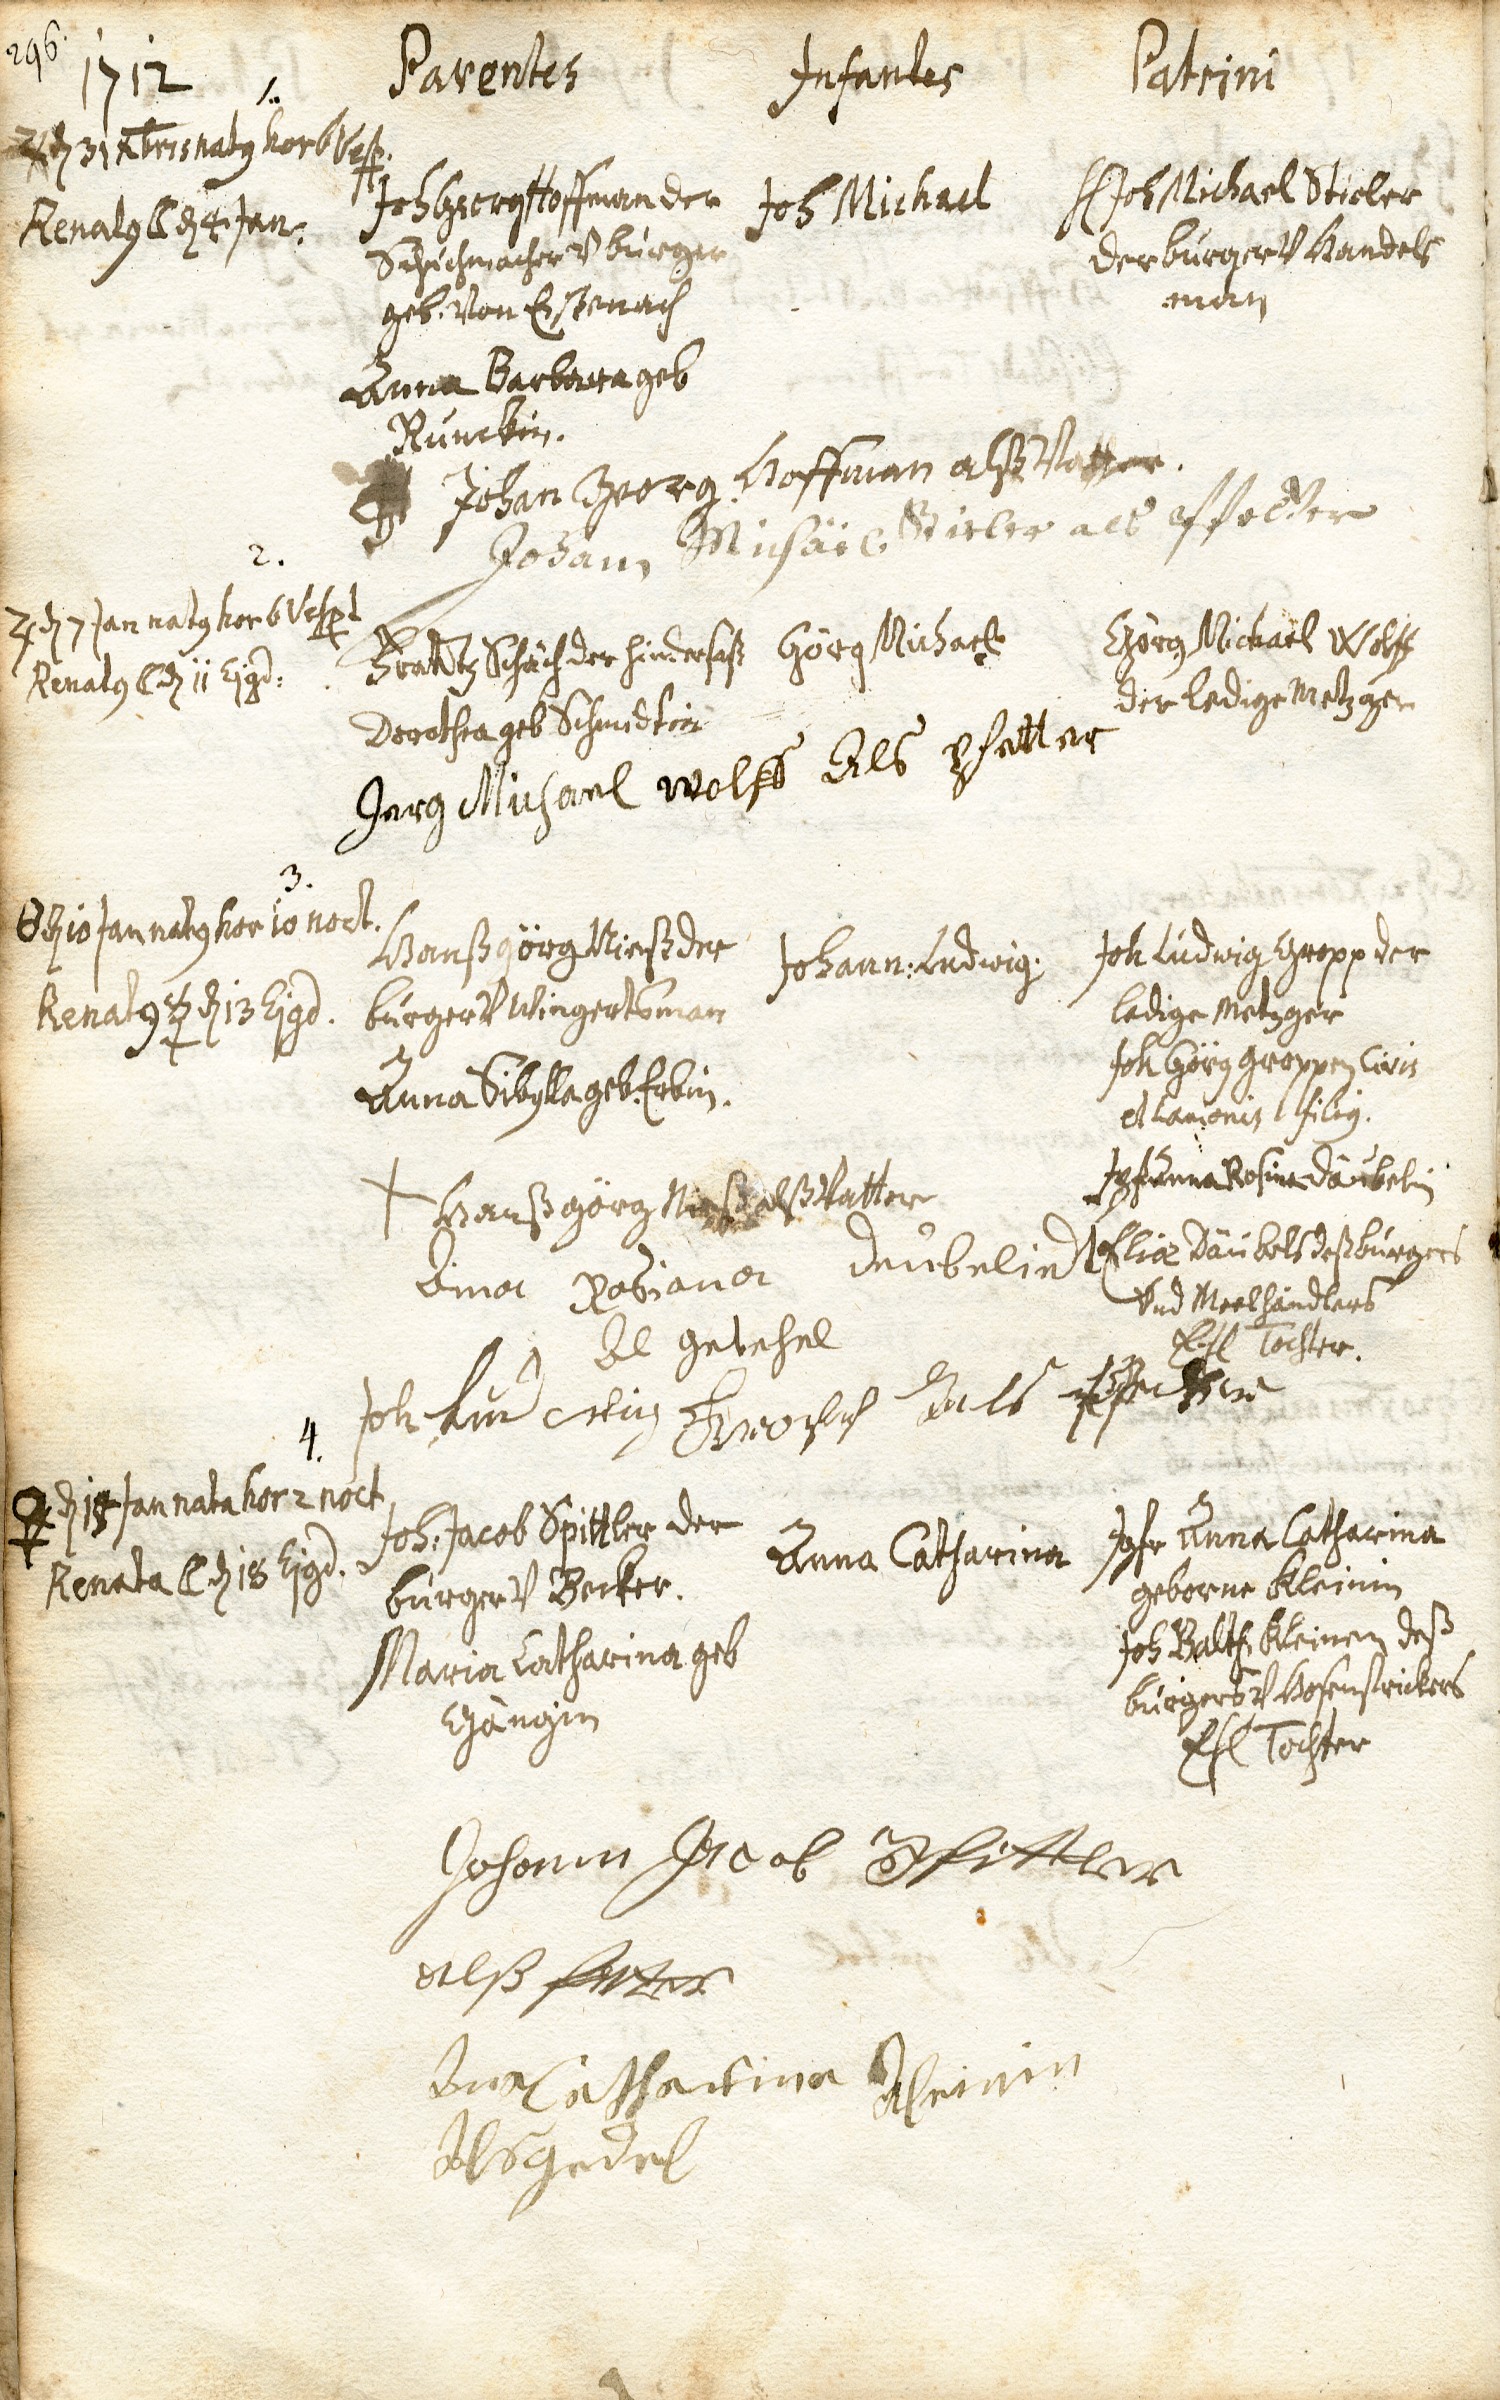 296.
1712
Parentes
Infantes
Patrini
1.
♃ d 31 Xbris natq hor 6 Vesp.
Renatq ☾ d 4 Jan:
Joh Georg Hoffman der
Schuchmacher V burger
geb. von Eißenach
Anna Barbara geb
Runckin.
Joh Michael
H Joh Michael Stieler
der burger V Handels
man
Johan Georg Hoffman alß Vatter.
Johann Michäel Stieler als pfetter
2.
♃ d 7 Jan natq hor 6 Vesp
Renatq ☾ d 11 Ejqd:
Frantz Schäch der hindersaß
Dorothea geb Schmidtin
Görg Michael
Görg Michael Wolff
der ledige Metzger
Jerg Michael wolff Als pfatter
3.
d 10 Jan natq hor 10 noct.
Renatq d 13 Ejqd.
Hanß görg Nieß der
burger V Wingertsman
Anna Sibylla geb. Erbin.
Johann: Ludwig:
Joh Ludwig Gropp der
ledige Metzger
Joh Görg Groppen Civis
et Lanionis filiq.
Jgfr Anna Rosina Däubelin
Eliæ Däubels deß burgers
Vnd Meelhändlers
Ehl Tochter.
+ Hanß görg Nieß alß Vatter
Anna Rosiana deubelin
Al getehel
Joh Ludwig Als
4.
♀ d 15 Jan nata hor 2 noct
Renata ☾ d 18 Ejqd.
Joh. Jacob Spittler der
burger V Becker.
Maria Catharina geb
Gängin
Anna Catharina
Jgfr Anna Catharina
geborne Kleinin
Joh Balth. Kleinen deß
burgers V Hosenstrickers
Ehl Tochter
Johann Jacob Spittler
alß fatter
Ana Catharina Kleinin
Als gedel